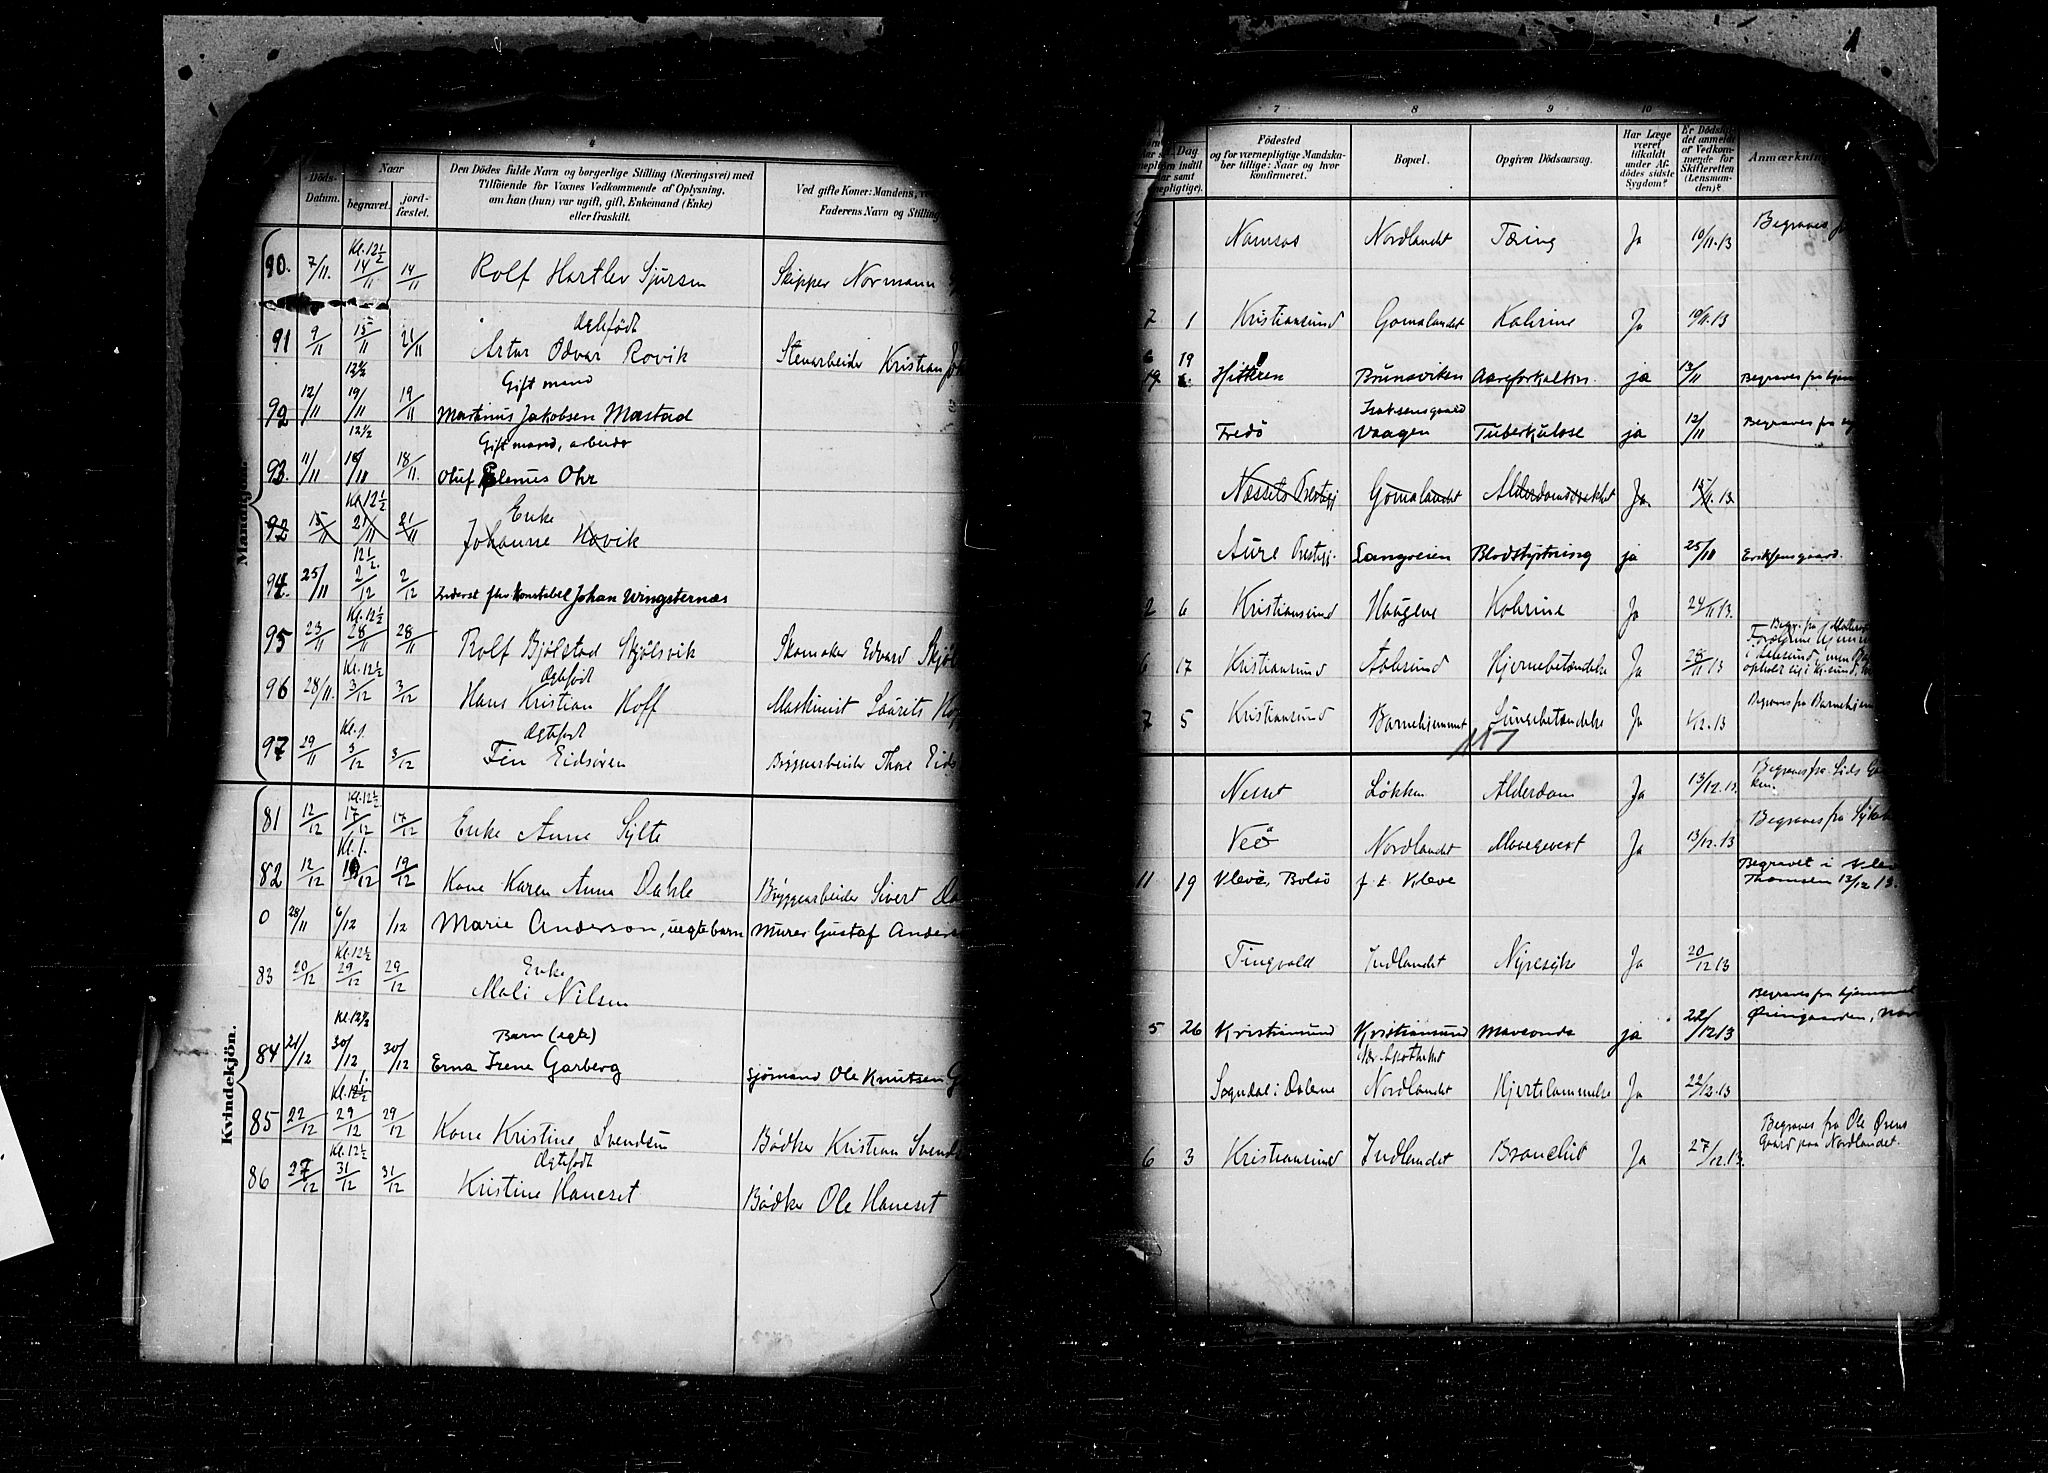 4
Døds-
Datum.
Naar
begravet.
jord-
fæstet.
Den Dödes fulde Navn og borgerlige Stilling (Næringsvei) med
Tilföiende for Voxnes Vedkommende af Oplysning,
om han (hun) var ugift, gift, Enkemand (Enke)
eller fraskilt.
Ved gifte Koner: Mandens,
Faderens Navn og Stilling
Mandkjön.
Kl. 12½
90. 7/11. 14/11 14/11 Rolf Hartlev Sjursen Skipper Normann
Ægtefödt
91 9/11 15/11 21/11 Artur Odvar Rovik Stenarbeider Kristian
12½ Gift mand
92 12/11 19/11 19/11 Martinus Jakobsen Mæstad
12½ Gift mand, arbeider
93. 11/11 18/11 18/11. Oluf Elenus Ohr
Kl. 12½ Enke
92 15/11 21/11 21/11 Johanne Hovik
12½.
94. 25/11 2/12 2/12 Johan Wingsternæs
Kl. 12½
95 23/11 28/11 28/11 Rolf Bjölstad Skjölsvik Skomaker Edvard
Kl. 12½ Ægtefödt
96 28/11. 3/12 3/12 Hans Kristian Hoff Maskinist Laurits
Kl. 1. Ægtefödt
97 29/11 3/12 3/12 Fin Eidsören Bryggearbeider Thore
Kvindekjön.
Kl. 12½
81 12/12 17/12 17/12 Enke Anne Sylte
Kl. 1.
82 12/12 19/12 19/12 Kone Karen Anna Dahle Bryggearbeider Sivert
0 28/11 6/12 /12 Marie Anderson, uegte barn Murer Gustaf
Kl. 12½ Enke
83 20/12 29/12 29/12 Mali Nilsen
Kl. 12½ Barn (egte)
84 21/12 30/12 30/12 Erna Irene Garberg Sjömand Ole Knutsen
1.
Kl. 12½
85 22/12 29/12 29/12 Kone Kristine Svendsen Bödker Kristian
Kl. 12½ Ægtefödt
86 27/12 31/12 31/12 Kristine Haneset Bödker Ole Haneset
7 8 9 10
Dag
Födested
og for værnepligtige Mandska-
ber tillige: Naar og hvor
konfirmeret.
Bopæl.
Opgiven Dödsaarsag.
Har Læge
været
tilkaldt
under Af-
dödes sidste
Sygdom?
Er Dödsfal-
det anmeldt
af Vedkom-
mende for
Skifteretten
(Lensman-
den)?
Anmærkning
Namsos Nordlandet Tæring Ja 10/11.13 Begraves
7 1 Kristiansund Gomalandet Kolerine Ja 10/11.13
6 19
19 Hitteren Brunsviken Aareforkalkn. ja 13/11 Begraves fra
Isaksensgaard
Fredö Vaagen Tuberkulose ja 12/11 Begraves fra
Næssets Prestegj Gomalandet Alderdomssvakhet Ja. 15/11.13
Aure Prestegj. Langveien Blodstyrtning ja 25/11 Eriksensgaard.
2 6 Kristiansund Haugene Kolerine Ja 24/11 13.
6 17 Kristiansund Aalesund Hjernebetændelse Ja 28/11 13
7 5 Kristiansund Barnehjemmet Lungebetændelse Ja 1/12.13 Begraves fra Barnehjem
Nesset Løkken Alderdom Ja 13/12.13. Begraves fra
Veö Nordlandet Mavegevext Ja 13/12.13 Begraves fra
11 19 Kleve, Bolsö f. t. Kleve Begravet i
Thomsen 12/12 13.
Tingvold Indlandet Nyresyke Ja 20/12 13
Begraves fra hjemmet
5 26 Kristiansund Kristiansund Maveonde ja 22/12 13
Sogndal i Dalene Nordlandet Hjertelammelse Ja 22/12.13
Begraves fra Ole Örens
Gaard paa Nordlandet.
6 3 Kristiansund Indlandet Bronchit Ja 27/12.13.